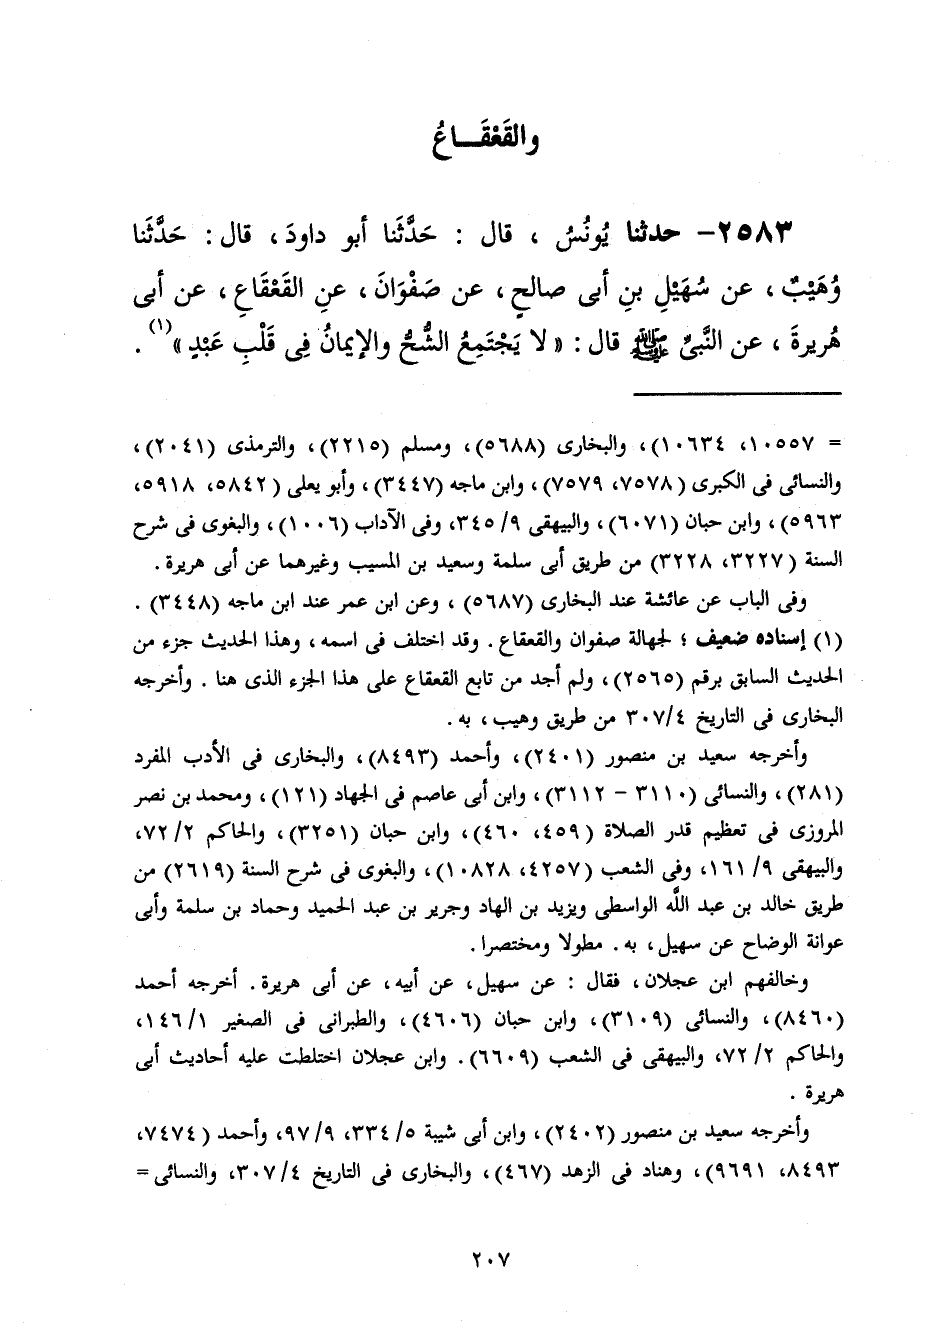 والقَعْقَـــاعُ
٢٥٨٣- حدثنا يُونُسُ ، قال : حَدَّثَنا أبو داودَ ، قال : حَدَّثَنا
وُهَيْبٌ ، عن سُهَيْلِ بنِ أبى صالحٍ ، عن صَفْوَانَ ، عنِ القَعْقَاعِ ، عن أبى
هُريرةَ ، عن النَّبىِّ ﷺ قال : « لا يَجْتَمِعُ الشُّحُّ والإيمانُ فِى قَلْبِ عَبْدٍ »(١) .
= ١٠٥٥٧، ١٠٦٣٤)، والبخارى (٥٦٨٨)، ومسلم (٢٢١٥)، والترمذى (٢٠٤١)،
والنسائى فى الكبرى (٧٥٧٨، ٧٥٧٩)، وابن ماجه (٣٤٤٧)، وأبو يعلى (٥٨٤٢، ٥٩١٨،
٥٩٦٣)، وابن حبان (٦٠٧١)، والبيهقى ٩/ ٣٤٥، وفى الآداب (١٠٠٦)، والبغوى فى شرح
السنة (٣٢٢٧، ٣٢٢٨) من طريق أبى سلمة وسعيد بن المسيب وغيرهما عن أبى هريرة .
وفى الباب عن عائشة عند البخارى (٥٦٨٧) ، وعن ابن عمر عند ابن ماجه (٣٤٤٨) .
(١) إسناده ضعيف ؛ لجهالة صفوان والقعقاع . وقد اختلف فى اسمه ، وهذا الحديث جزء من
الحديث السابق برقم (٢٥٦٥)، ولم أجد من تابع القعقاع على هذا الجزء الذى هنا . وأخرجه
البخارى فى التاريخ ٣٠٧/٤ من طريق وهيب ، به .
وأخرجه سعيد بن منصور (٢٤٠١)، وأحمد (٨٤٩٣)، والبخارى فى الأدب المفرد
(٢٨١) ، والنسائى (٣١١٠ - ٣١١٢)، وابن أبى عاصم فى الجهاد (١٢١) ، ومحمد بن نصر
المروزى فى تعظيم قدر الصلاة (٤٥٩، ٤٦٠)، وابن حبان (٣٢٥١)، والحاكم ٧٢/٢،
والبيهقى ٩/ ١٦١، وفى الشعب (٤٢٥٧، ١٠٨٢٨)، والبغوى فى شرح السنة (٢٦١٩) من
طريق خالد بن عبد اللَّه الواسطى ويزيد بن الهاد وجرير بن عبد الحميد وحماد بن سلمة وأبى
عوانة الوضاح عن سهيل، به . مطولا ومختصرا .
وخالفهم ابن عجلان، فقال : عن سهيل، عن أبيه، عن أبى هريرة . أخرجه أحمد
(٨٤٦٠)، والنسائى (٣١٠٩)، وابن حبان (٤٦٠٦)، والطبرانى فى الصغير ١٤٦/١،
والحاكم ٧٢/٢، والبيهقى فى الشعب (٦٦٠٩). وابن عجلان اختلطت عليه أحاديث أبى
هريرة .
وأخرجه سعيد بن منصور (٢٤٠٢)، وابن أبى شيبة ٥/ ٣٣٤، ٩٧/٩، وأحمد (٧٤٧٤،
٨٤٩٣، ٩٦٩١)، وهناد فى الزهد (٤٦٧)، والبخارى فى التاريخ ٣٠٧/٤، والنسائى =
٢٠٧